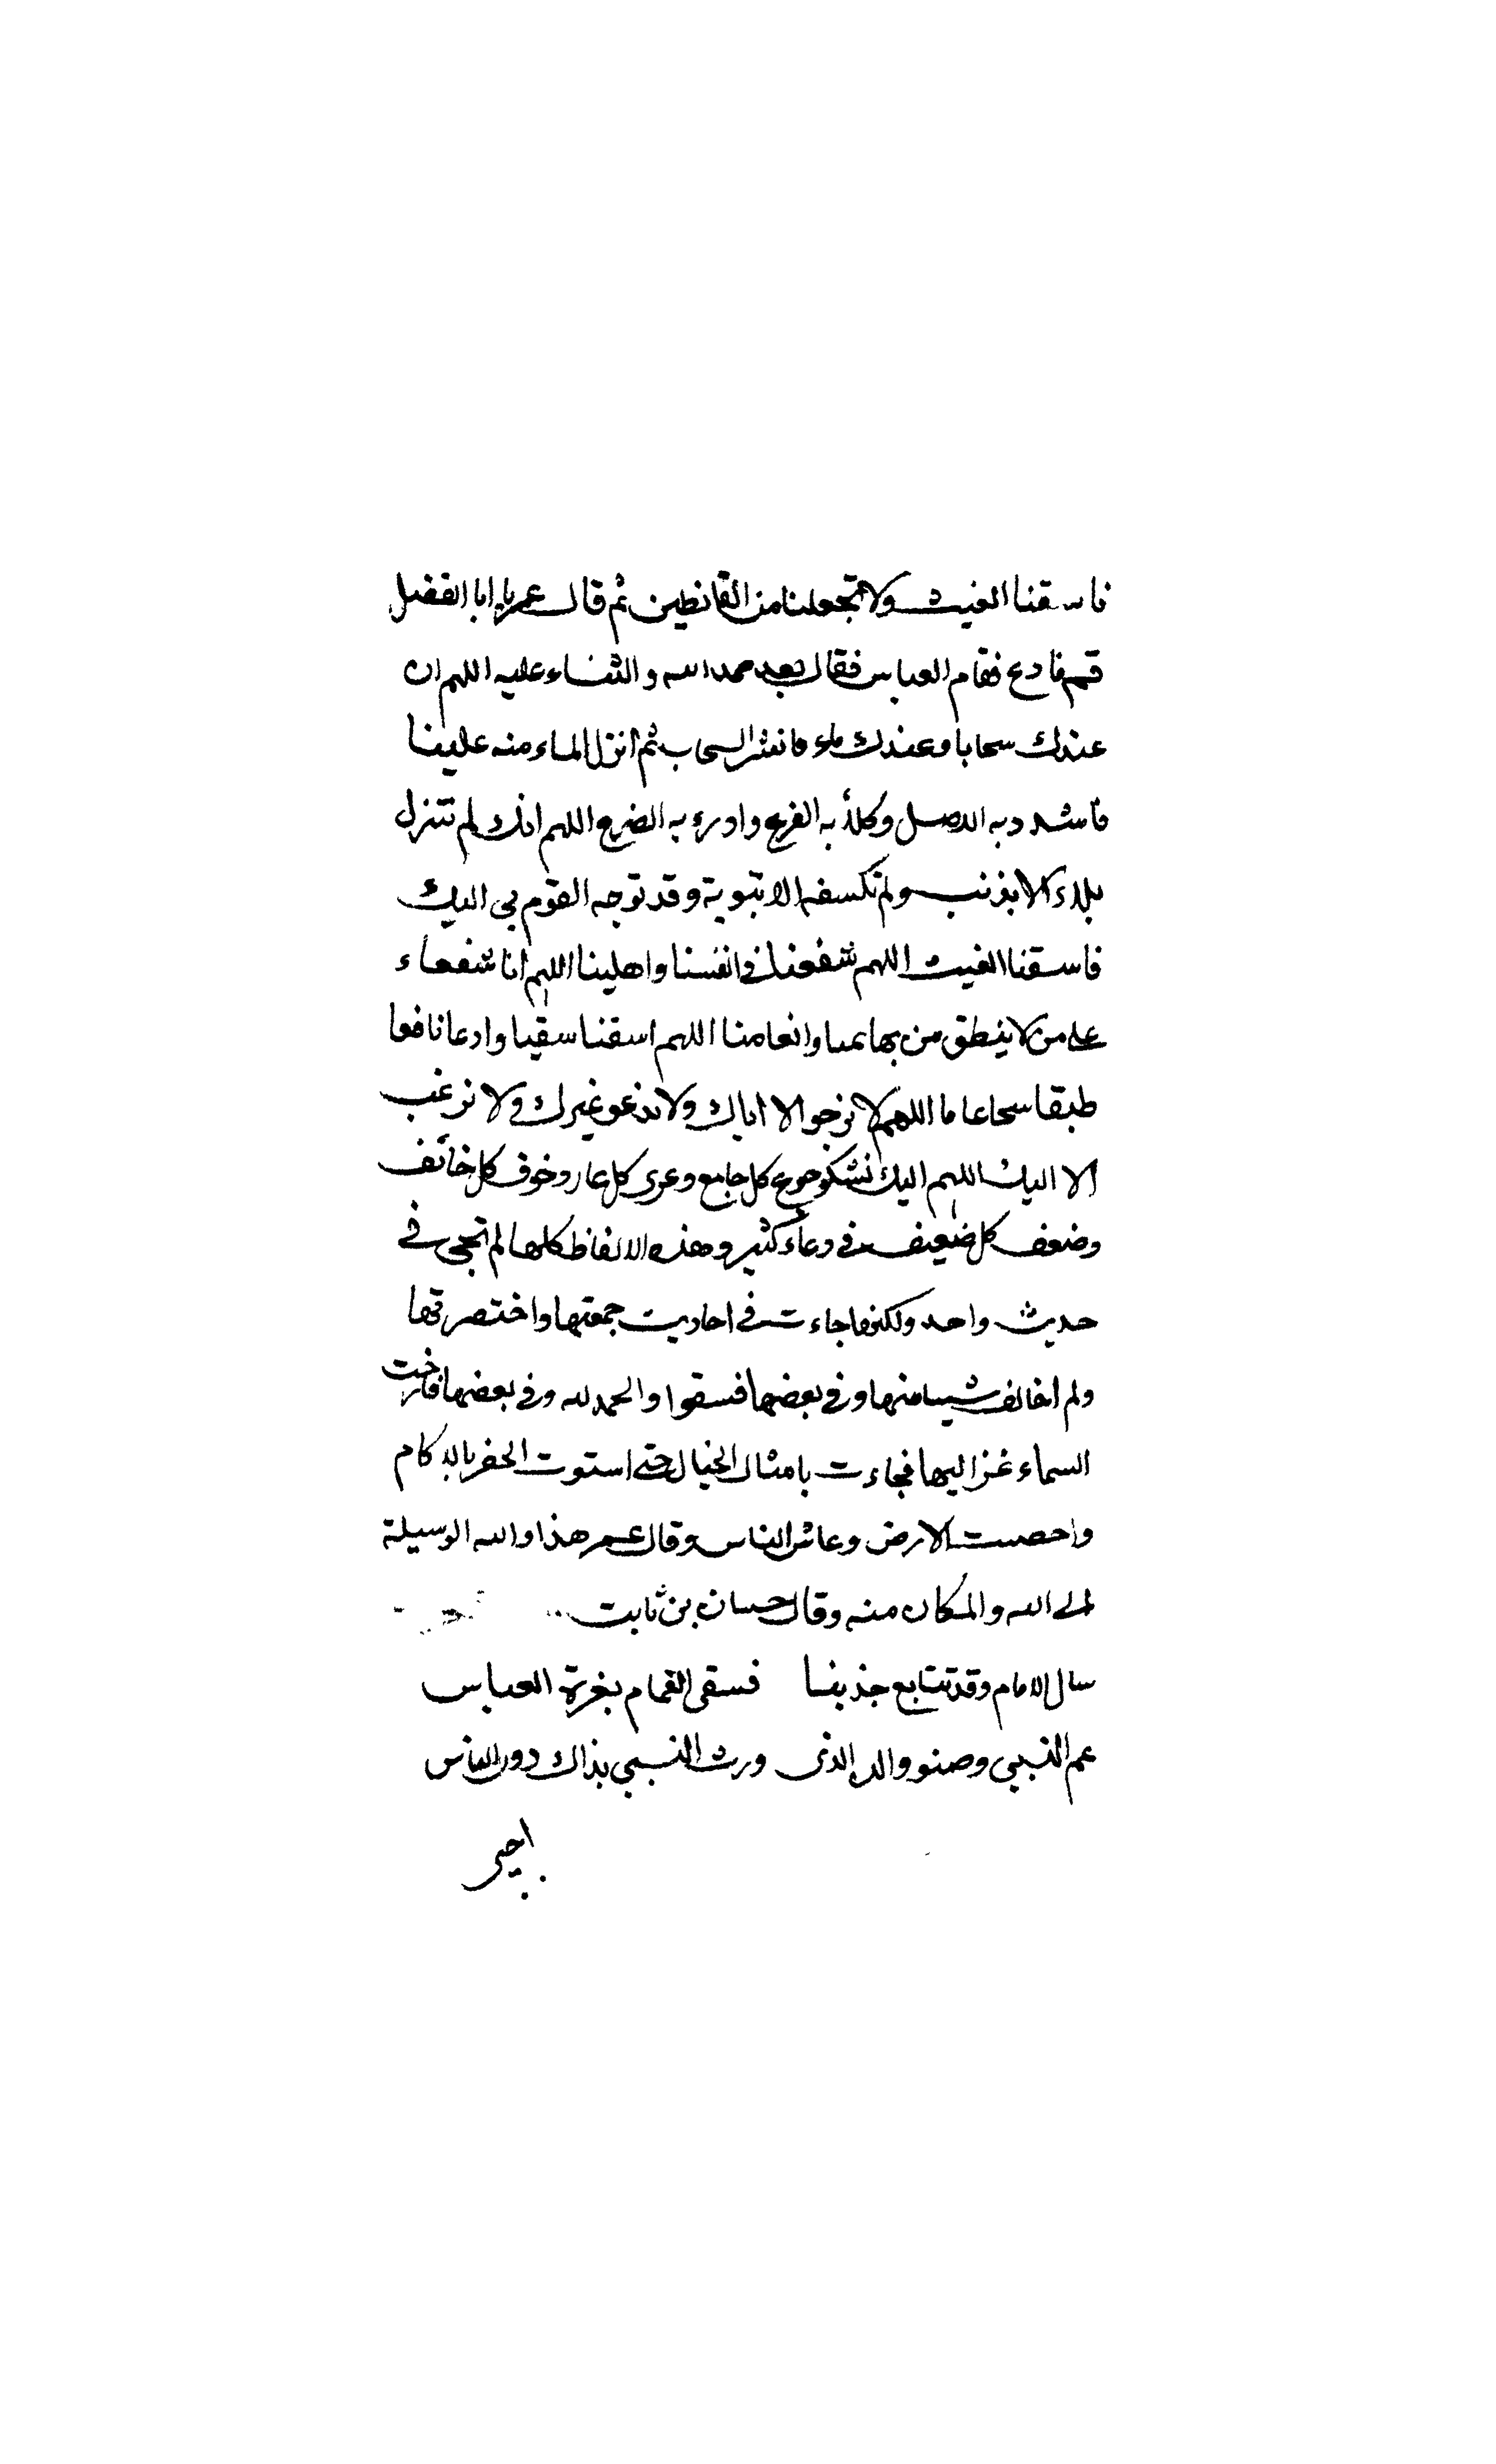 فاسقنا الغيث ولا تجعلنا من القانطين ثم قال عمر يا ابا الفضل
قم فادع فقام العباس فقال بعد حمد الله والثناء عليه اللهم ان
عندك سحابا وعندك ماء فانشر السحاب ثم انزل الماء منه علينا
فاشدد به الاصل وكلأ به الفرع وادرء به الضرع اللهم انك لم تنزل
بلاء الا بذنب ولم تكسفه الا بتوبة وقد توجه القوم بى اليك
فاسقنا الغيث اللهم شفعنا فى انفسنا واهلينا اللهم انا شفعاء
على من لا ينطق من بهائمنا وانعامنا اللهم اسقنا سقيا وادعا نافعا
طبقا سحا عاما اللهم لا نرجو الا اياك ولا ندعو غيرك ولا نرغب
الا اليك اللهم اليك نشكو جوع كل جايع وعرى كل عار وخوف كل خائف
وضعف كل ضعيف فى دعاء كثير وهذه الالفاظ كلها لم تجئ فى
حديث واحد ولكنها جاءت فى احاديث جمعتها واختصرتها
ولم اخالف شيا منها وفى بعضها فسقوا والحمد لله وفى بعضها فارخت
السماء عزاليها فجاءت بامثال الجبال حتى استوت الحفر بالاكام
واخصبت الارض وعاش الناس وقال عمر هذا والله الوسيلة
الى الله والمكان منه وقال حسان بن ثابت
سال الامام وقد تتابع جذبنا فسقى الغمام بغرة العباس
عم النبى وصنو والد الذى ورث النبى بذاك دون الناس
احيى